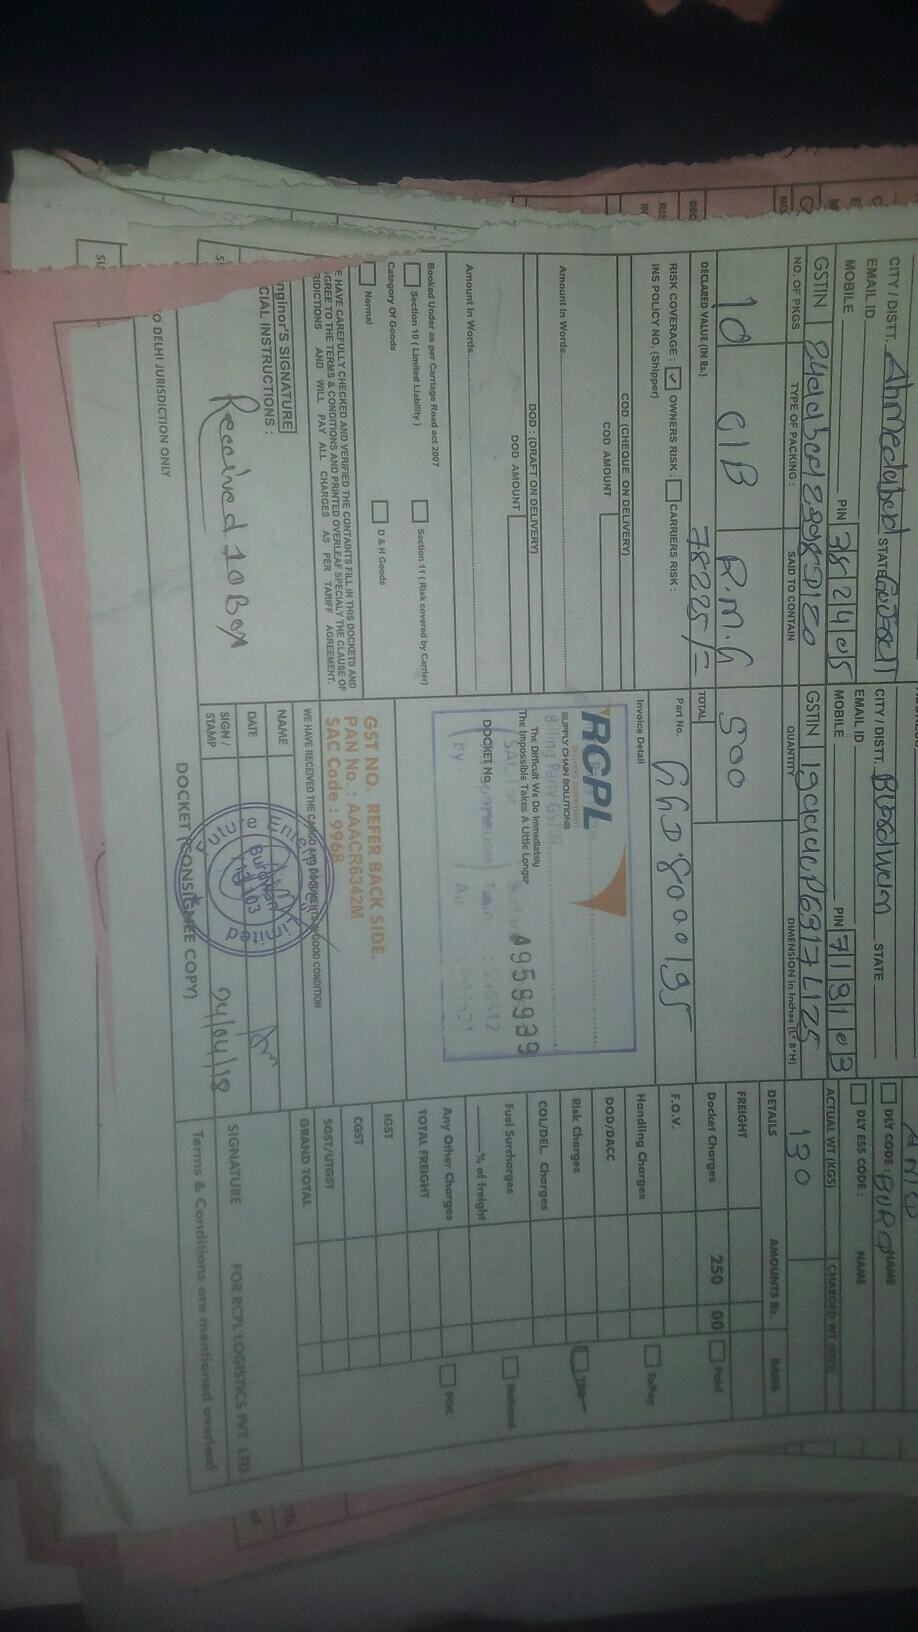 CITY / DISTT. Ahmedabad STATE
EMAIL ID
MOBILE PIN 382405
GSTIN
NO. OF PKGS TYPE OF PACKING : SAID TO CONTAIN
10 C/B R.M.G
DECLARED VALUE (IN Rs.) 78225/=
RISK COVERAGE : OWNERS RISK : CARRIERS RISK :
INS POLICY NO. (Shipper)
COD (CHEQUE ON DELIVERY)
COD AMOUNT
Amount In Words
DOD : (DRAFT ON DELIVERY)
DOD AMOUNT
Amount In Words
Booked Under as per Carriage Road act 2007
Section 10 ( Limited Liability ) Section 11 ( Risk covered by Carrier)
Category Of Goods
Normal D & H Goods
E HAVE CAREFULLY CHECKED AND VERIFIED THE CONTAINTS FILL IN THIS DOCKETS AND
GREE TO THE TERMS & CONDITIONS AND PRINTED OVERLEAF SPECIALY THE CLAUSE OF
RIDICTIONS AND WILL PAY ALL CHARGES AS PER TARIFF AGREEMENT.
nginor's SIGNATURE
CIAL INSTRUCTIONS :
Received 10 Box
TO DELHI JURISDICTION ONLY
CITY / DISTT. STATE
EMAIL ID
MOBILE PIN 713103
GSTIN
QUANTITY DIMENSION in Inches (L* B*H)
500
TOTAL
Part No.
Invoice Detail
RCPL
SUPPLY CHAIN SOLUTIONS
Billing Party GSTIN
The Difficult We Do Immediately
The Impossible Takes A Little Longer
DOCKET No. 4959939
By Air
GST NO. REFER BACK SIDE.
PAN No. : AAACR6342M
SAC Code : 9968
WE HAVE RECEIVED THE CARGO AND DOCUMENTS IN GOOD CONDITION
NAME
DATE
SIGN /
STAMP
24/04/18
Burdwan
DOCKET (CONSIGNEE COPY)
DLY CODE : NAME
DLY ESS CODE : NAME
ACTUAL WT (KGS) CHARGED WT (KGS)
130
DETAILS AMOUNTS Rs. BASIS
FREIGHT
Docket Charges 250 00 Paid
F.O.V.
Handling Charges ToPay
DOD/DACC
Risk Charges TBB
COL/DEL. Charges
Fuel Surcharges National
% of freight
Any Other Charges FOC
TOTAL FREIGHT
IGST
CGST
SGST/UTGST
GRAND TOTAL
SIGNATURE FOR RCPL LOGISTICS PVT. LTD
Terms & Conditions are mentioned overleaf